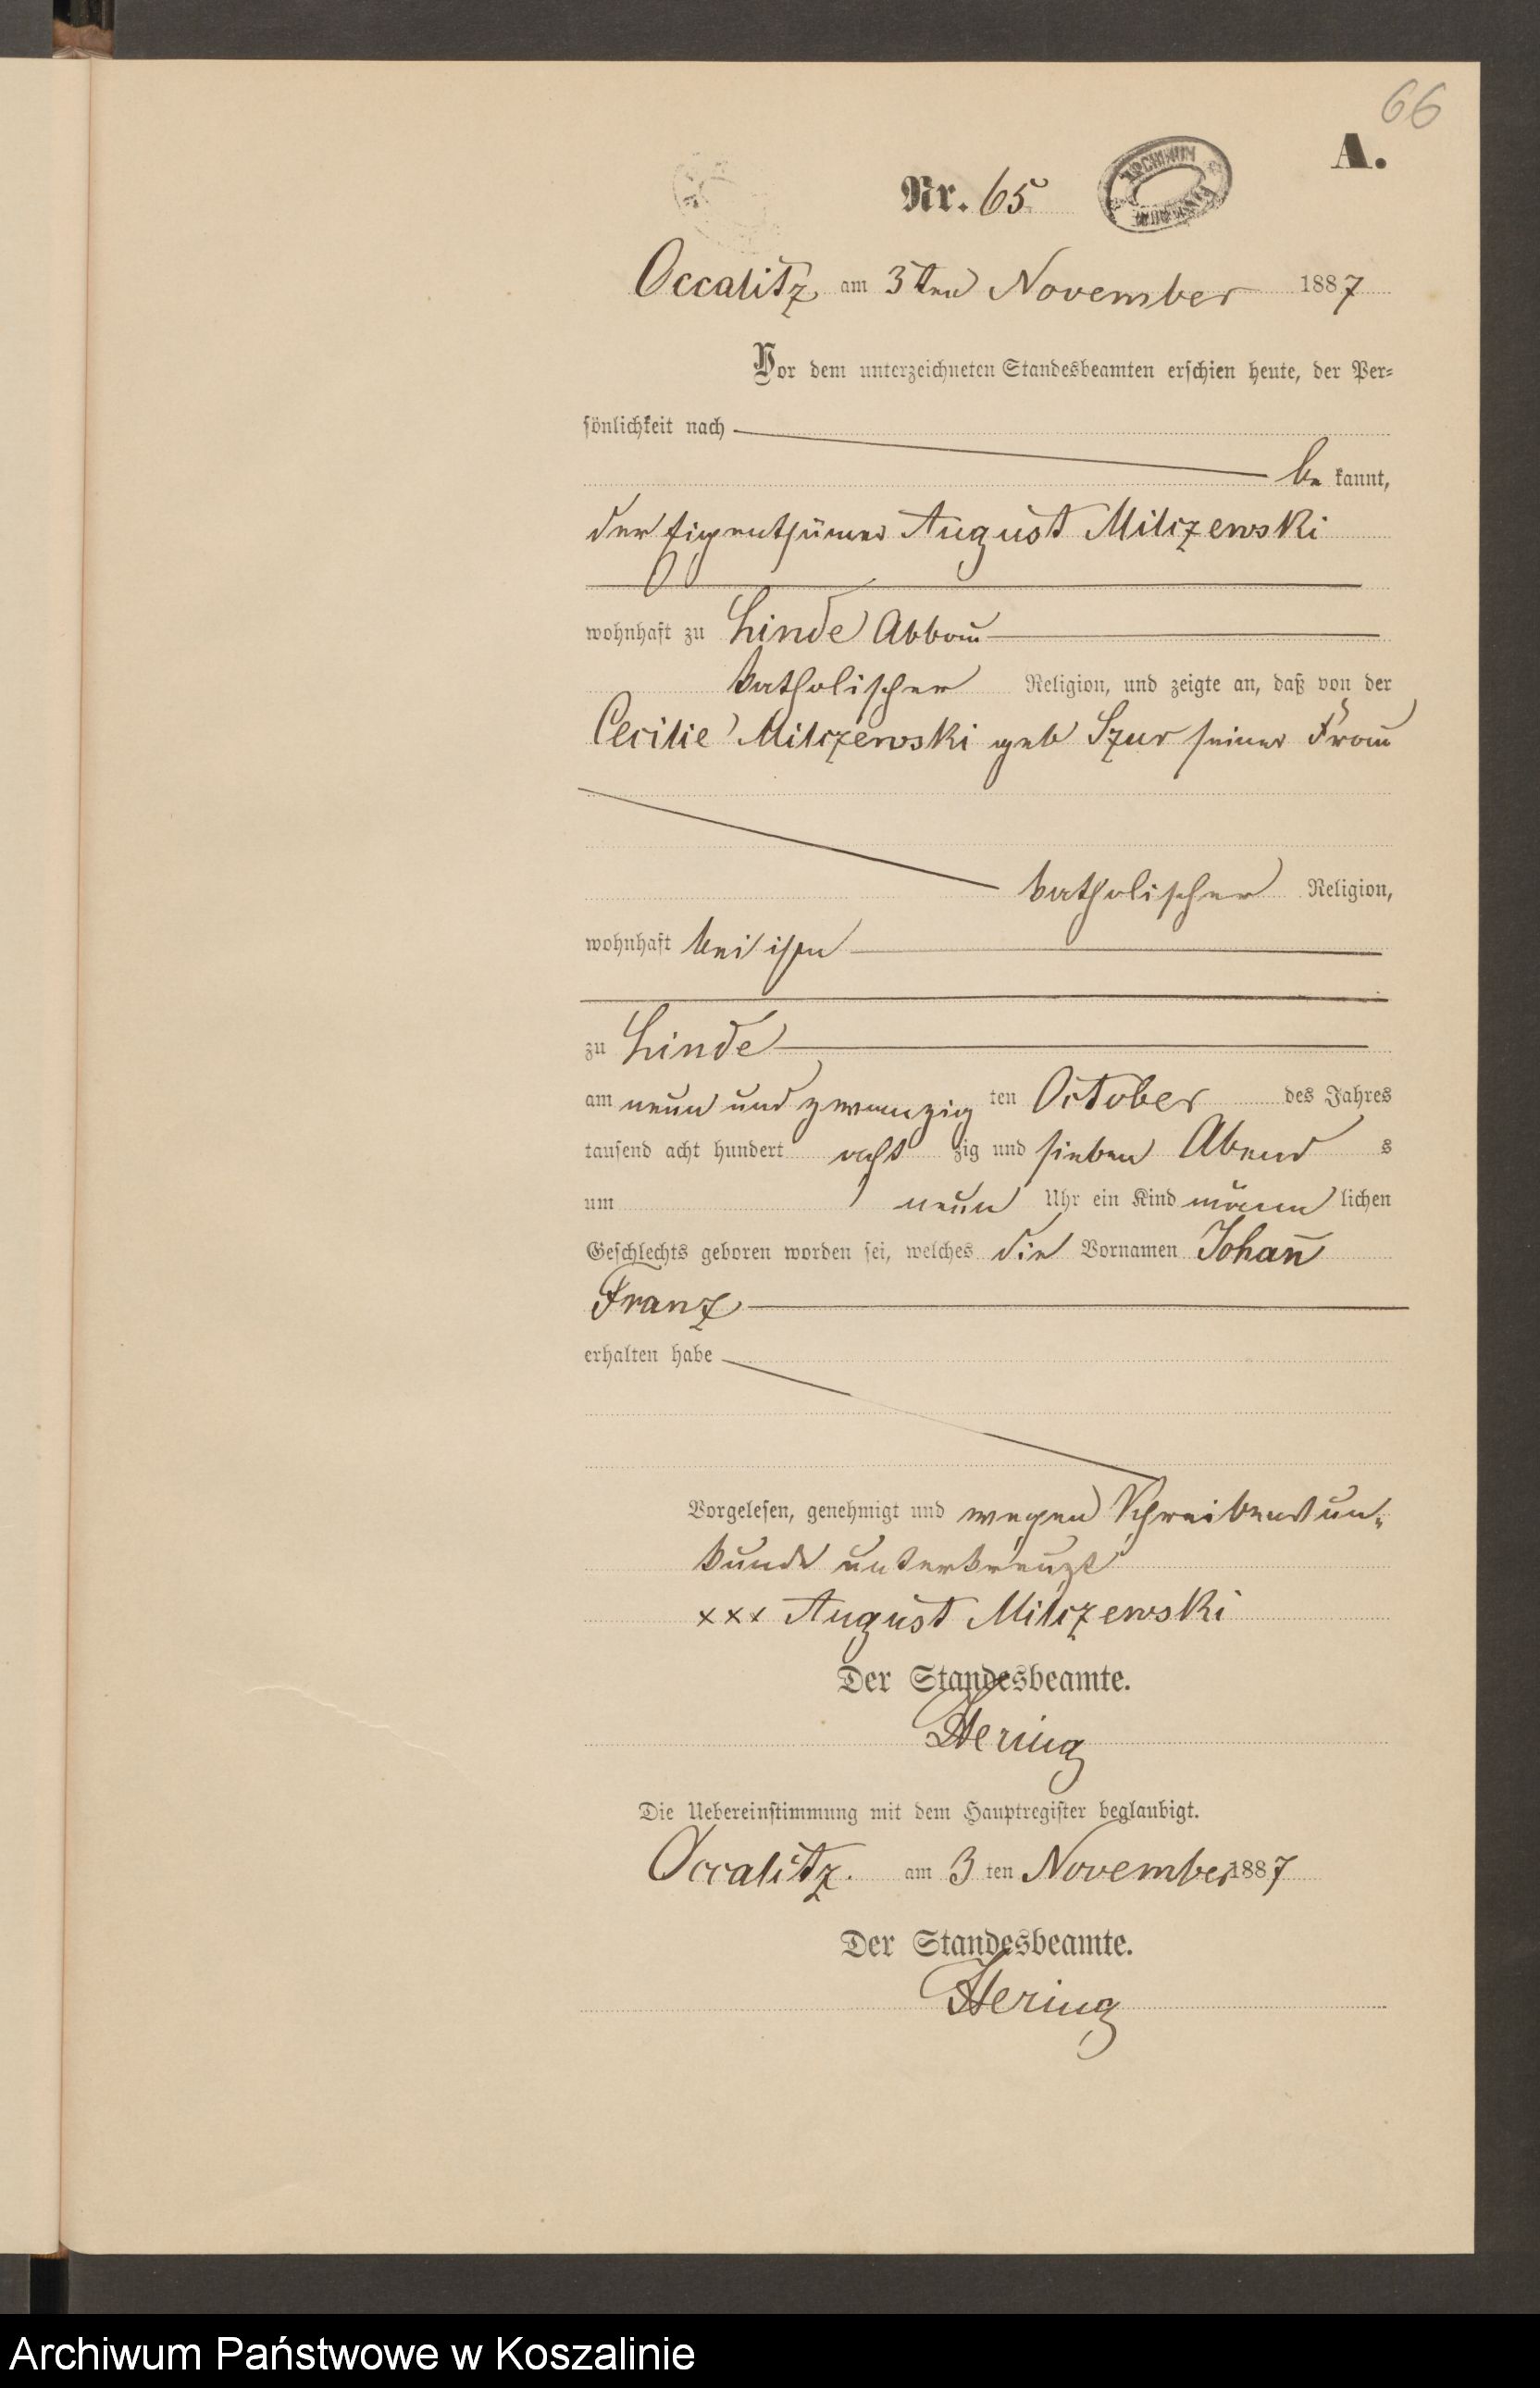 66
A.
Nr. 65
ARCHIWUM
Occalitz am 3ten November 1887
Vor dem unterzeichneten Standesbeamten erschien heute, der Per-
sönlichkeit nach
be kannt,
der Eigenthümer August Milczewski
wohnhaft zu Linde Abbau
katholischer Religion, und zeigte an, daß von der
Cecilie Milczewski geb Szur seiner Frau
katholischer Religion,
wohnhaft bei ihm
zu Linde
am neun und zwanzig ten October des Jahres
tausend acht hundert acht zig und sieben Abend s
um neun Uhr ein Kind männ lichen
Geschlechts geboren worden sei, welches die Vornamen Johann̄
Franz
erhalten habe
Vorgelesen, genehmigt und wegen Schreibens un-
kunde unterkreuzt
xxx August Milczewski
Der Standesbeamte.
Hering
Die Uebereinstimmung mit dem Hauptregister beglaubigt.
Occalitz. am 3 ten November 1887
Der Standesbeamte.
Hering
Archiwum Państwowe w Koszalinie